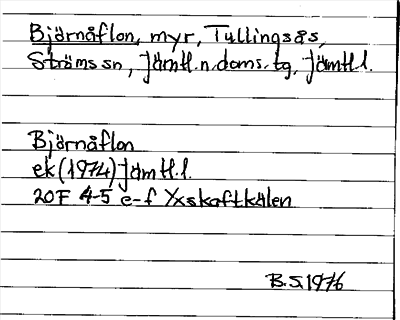 Björnåflon, myr, Tullingsås,
Ströms sn, Jämtl.n.doms.tg, Jämtl.l.
Björnåflon
ek (1974) Jämtl.l.
20F 4-5 e-f Yxskaftkälen
B.S.1976